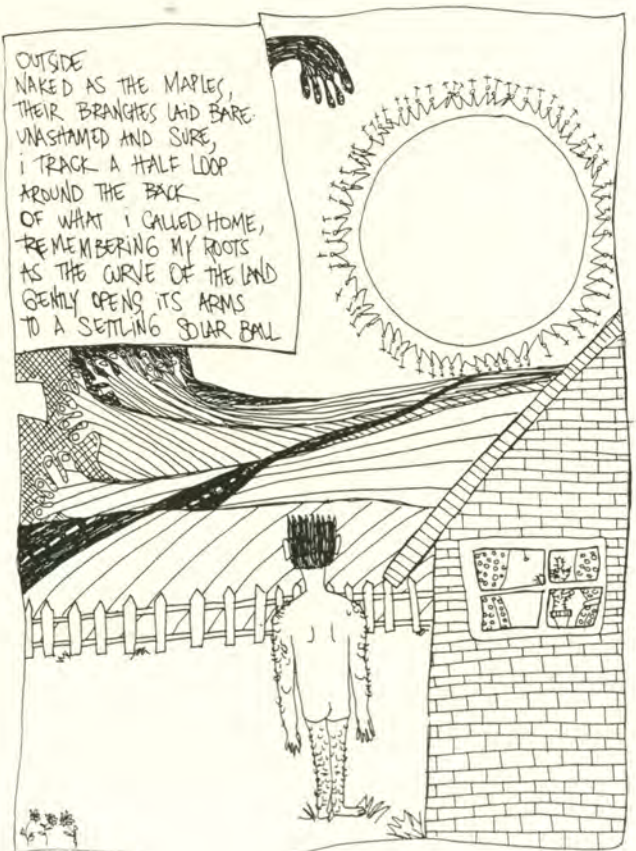 OUTSIDE
NAKED AS THE MAPLES,
THEIR BRANCHES LAID BARE.
UNASHAMED AND SURE,
i TRACK A HALF LOOP
AROUND THE BACK
OF WHAT i CALLED HOME,
REMEMBERING MY ROOTS
AS THE CURVE OF THE LAND
GENTLY OPENS ITS ARMS
TO A SETTLING SOLAR BALL